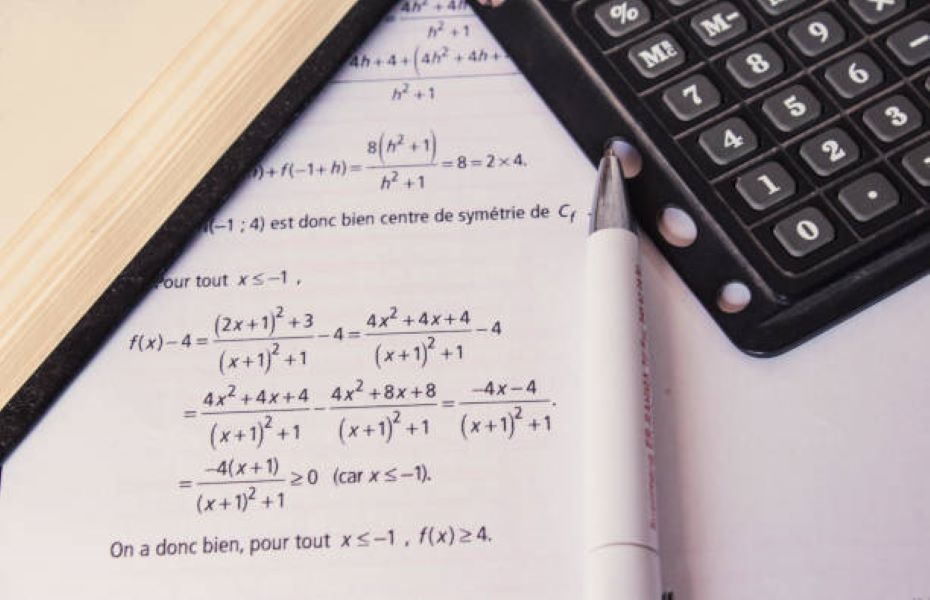 = 4h² + 4h
h² + 1
4h + 4 + (4h² + 4h +
h² + 1
) + f(−1 + h) = 8(h² + 1) / h² + 1 = 8 = 2 × 4.
(−1 ; 4) est donc bien centre de symétrie de C_f
Pour tout x ≤ −1 ,
f(x) − 4 = (2x + 1)² + 3 / (x + 1)² + 1 − 4 = 4x² + 4x + 4 / (x + 1)² + 1 − 4
= 4x² + 4x + 4 / (x + 1)² + 1 − 4x² + 8x + 8 / (x + 1)² + 1 = −4x − 4 / (x + 1)² + 1 .
= −4(x + 1) / (x + 1)² + 1 ≥ 0 (car x ≤ −1).
On a donc bien, pour tout x ≤ −1 , f(x) ≥ 4.
% M− ×
9 −
8 6
7 5 3
4 2
1 .
0